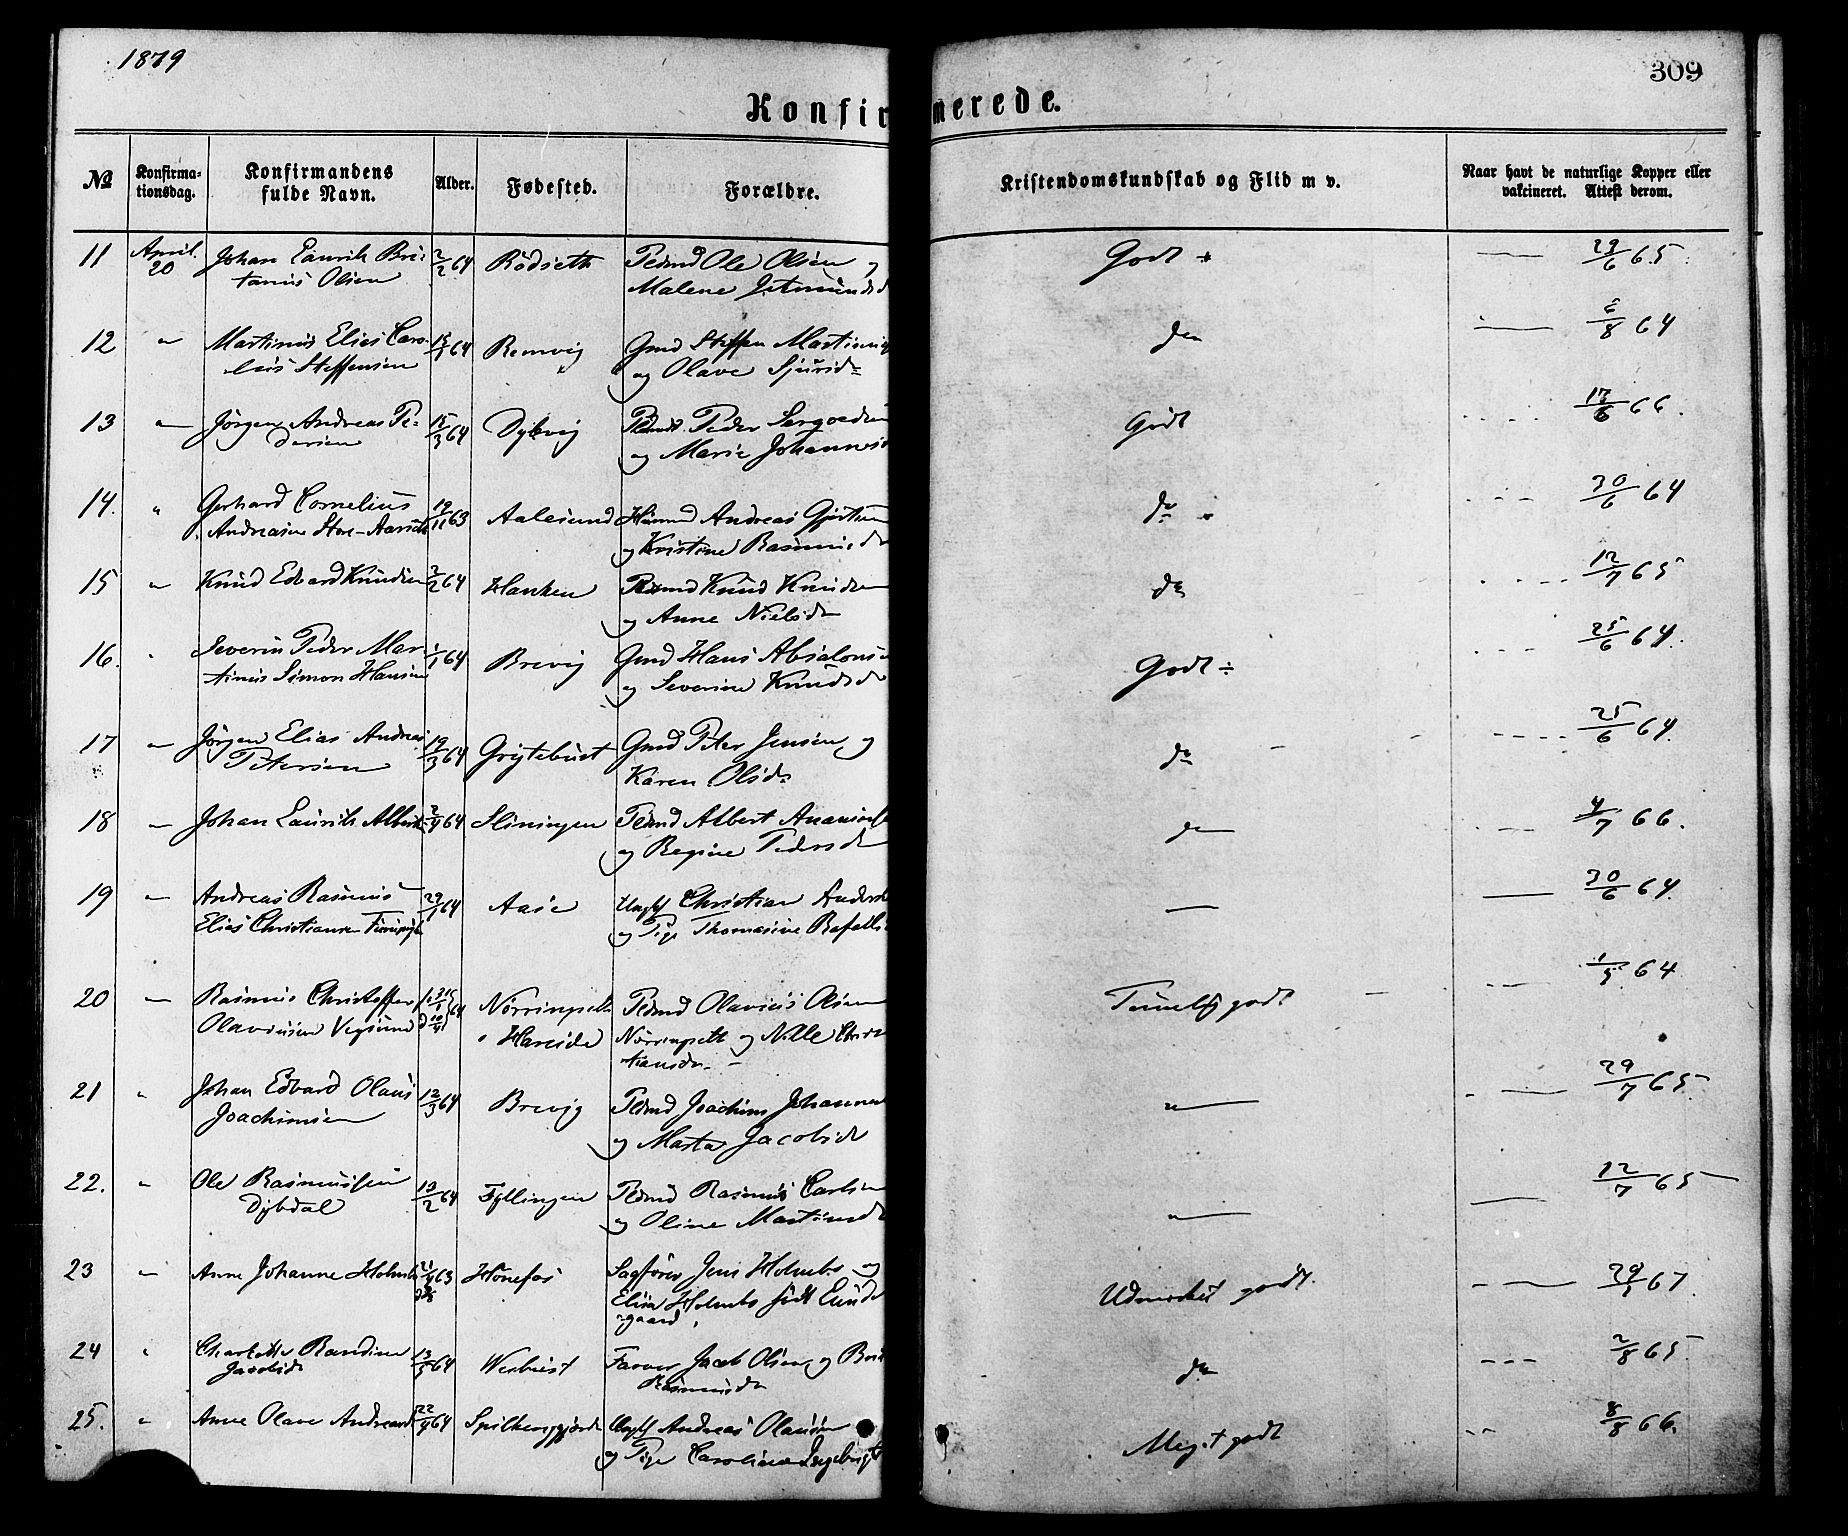 1879
309
Konfirmerede.
№
Konfirma-
tionsdag.
Konfirmandens
fulde Navn.
Alder.
Fødested.
Forældre.
Kristendomskundskab og Flid m v.
Naar havt de naturlige Kopper eller
vakcineret. Attest derom.
11 April 20 Johan Laurits Bri- 2/2 64 Rødseth Pdmd Ole Olsen og Godt ÷ 29/6 65.
tanius Olsen Malene Jetmundsd
12 " Martinus Elias Caro- 64 Remvig Gmd Steffen Martinus do 6/8 64
lius Steffensen og Olave Sjursd
13 " Jørgen Andreas Pe- 15/3 64 Dybvig Peder Godt 17/6 66.
dersen og Marie Johannesd
14. " Gerhard Cornelius 19/11 63 Aalesund Andreas do 30/6 64
Andreasen Store-Aarseth og Kristine Rasmusd
15 " Knud Edvard Knudsen 2/2 64 Hanken Knud Knudsen do 12/7 65
og Anne Nielsd
16. " Severin Peder Mar- 1/1 64 Brevig Gmd Hans Absalons Godt ÷ 25/6 64.
tinus Simon Hansen og Severine Knudsd
17 " Jørgen Elias Andreas 19/3 64 Grytebust Gmd Peter Jensen og do 25/6 64.
Petersen Karen Olsd
18 " Johan Laurits Alberts 2/4 64 Sliningen Pdmd Albert Ananias do 4/7 66.
og Regine Pedersd
19 " Andreas Rasmus 29/1 64 Aase Ungkf Christian Anders — 30/6 64.
Elias Christiansen og Pige Thomasine Rafaels
20 " Rasmus Christoffer 64 Nørrinpeth Pdmd Olavius Olsen Temelig godt 1/5 64
Olavsen Vegsund i Hareide og Nille Chris
tiansdr.
21 " Johan Edvard Olaus 12/3 64 Brevig Pdmd Joachim Johannes " 29/7 65
Joachimsen og Marta Jacobsd
22. " Ole Rasmussen 13/2 64 Fyllingen Pdmd Rasmus Carlsen " 12/7 65
Dybdal og Oline Martinusd
23 " Anne Johanne Holmbo 63 Hønefos Sagfører Jens Holmbo og Udmerket godt. 67
Elisa Holmbo født Lunde
gaard
24 " Charlotte Randine 64 Werbust Farver Jacob Olsen og do 2/8 65.
Jacobsd Rasmusd
25. " Anne Olave Andreasd 22/4 64 Spilkevig Ungkf Andreas Olausen Meget godt 8/8 66.
og Pige Caroline Ingebrigt